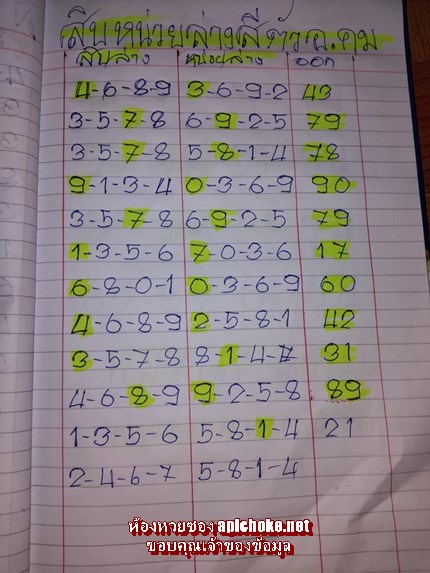 สิบหน่วยล่างสี่ตัวอ.คม
สิบล่าง หน่วยล่าง ออก
4-6-8-9 3-6-9-2 43
3-5-7-8 6-9-2-5 79
3-5-7-8 5-8-1-4 78
9-1-3-4 0-3-6-9 90
3-5-7-8 6-9-2-5 79
1-3-5-6 7-0-3-6 17
6-8-0-1 0-3-6-9 60
4-6-8-9 2-5-8-1 42
3-5-7-8 8-1-4-7 31
4-6-8-9 9-2-5-8 89
1-3-5-6 5-8-1-4 21
2-4-6-7 5-8-1-4
ห้องหวยซอง apichoke.net
ขอบคุณเจ้าของข้อมูล